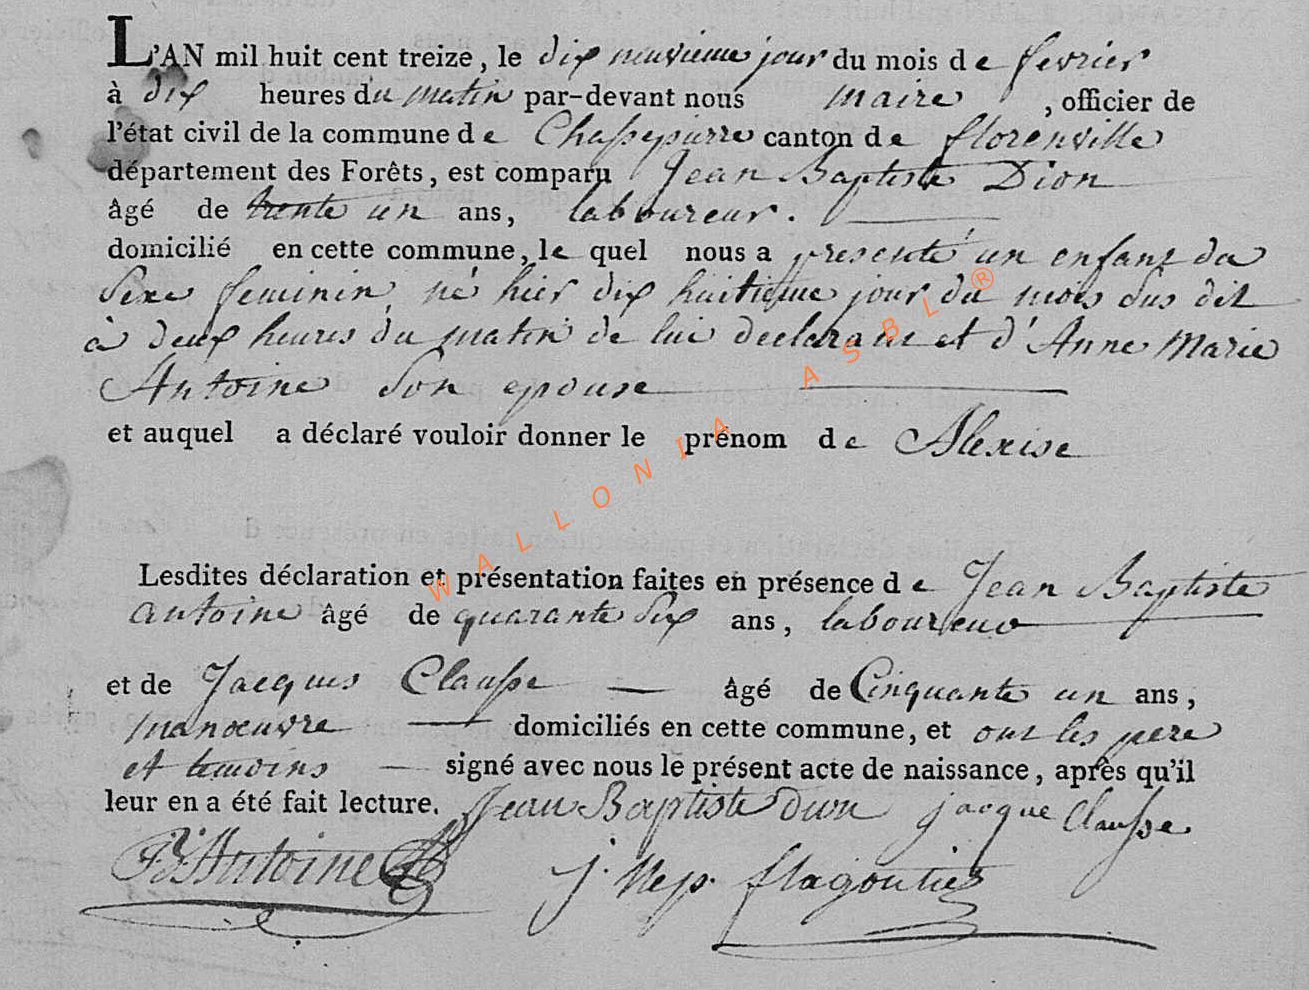 L'AN mil huit cent treize, le dix neuvieme jour du mois de fevrier
à dix heures du matin par-devant nous maire, officier de
l'état civil de la commune de Chassepierre canton de florenville
département des Forêts, est comparu Jean Baptiste Dion
âgé de trente un ans, laboureur.
domicilié en cette commune, le quel nous a presenté un enfant du
Sexe feminin, né hier dix huitieme jour du mois sus dit
à deux heures du matin de lui declarant et d'Anne Marie
Antoine son epouse
et auquel a déclaré vouloir donner le prénom de Alexise
Lesdites déclaration et présentation faites en présence de Jean Baptiste
antoine âgé de quarante six ans, laboureur
et de Jacques Clausse âgé de Cinquante un ans,
manœuvre domiciliés en cette commune, et ont les pere
et temoins signé avec nous le présent acte de naissance, après qu'il
leur en a été fait lecture. Jean Baptiste dion jacque Clausse
Antoine j. Nep. flagontier
WALLONIA ASBL ®